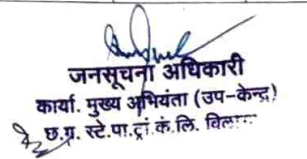 जनसूचना अधिकारी
कार्या. मुख्य अभियंता (उप-केन्द्र)
छ.ग्र. स्टे.पा.ट्रां.कं.लि.